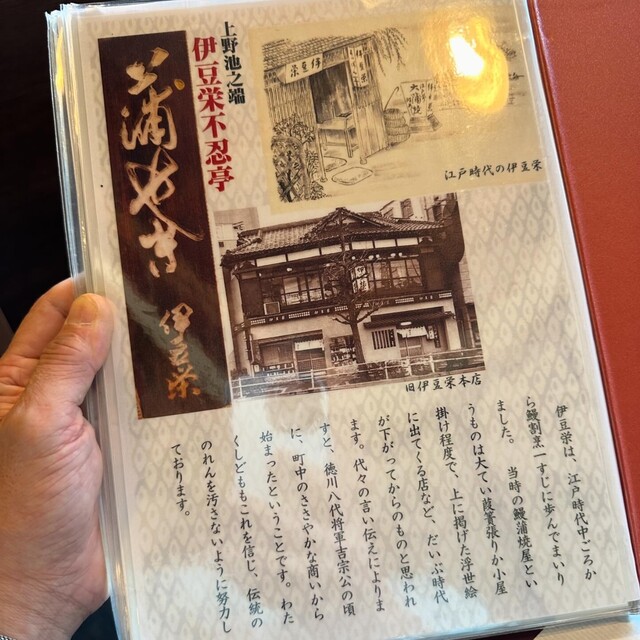 上野池之端
伊豆栄不忍亭
蒲やき
伊豆栄
江戸時代の伊豆栄
旧伊豆栄本店
伊豆栄は、江戸時代中ごろか
ら鰻割烹一すじに歩んでまいり
ました。　当時の鰻蒲焼屋とい
うものは大てい葭簀張りか小屋
掛け程度で、上に掲げた浮世絵
に出てくる店など、だいぶ時代
が下がってからのものと思われ
ます。代々の言い伝えによりま
すと、徳川八代将軍吉宗公の頃
に、町中のささやかな商いから
始まったということです。わた
くしどももこれを信じ、伝統の
のれんを汚さないように努力し
ております。